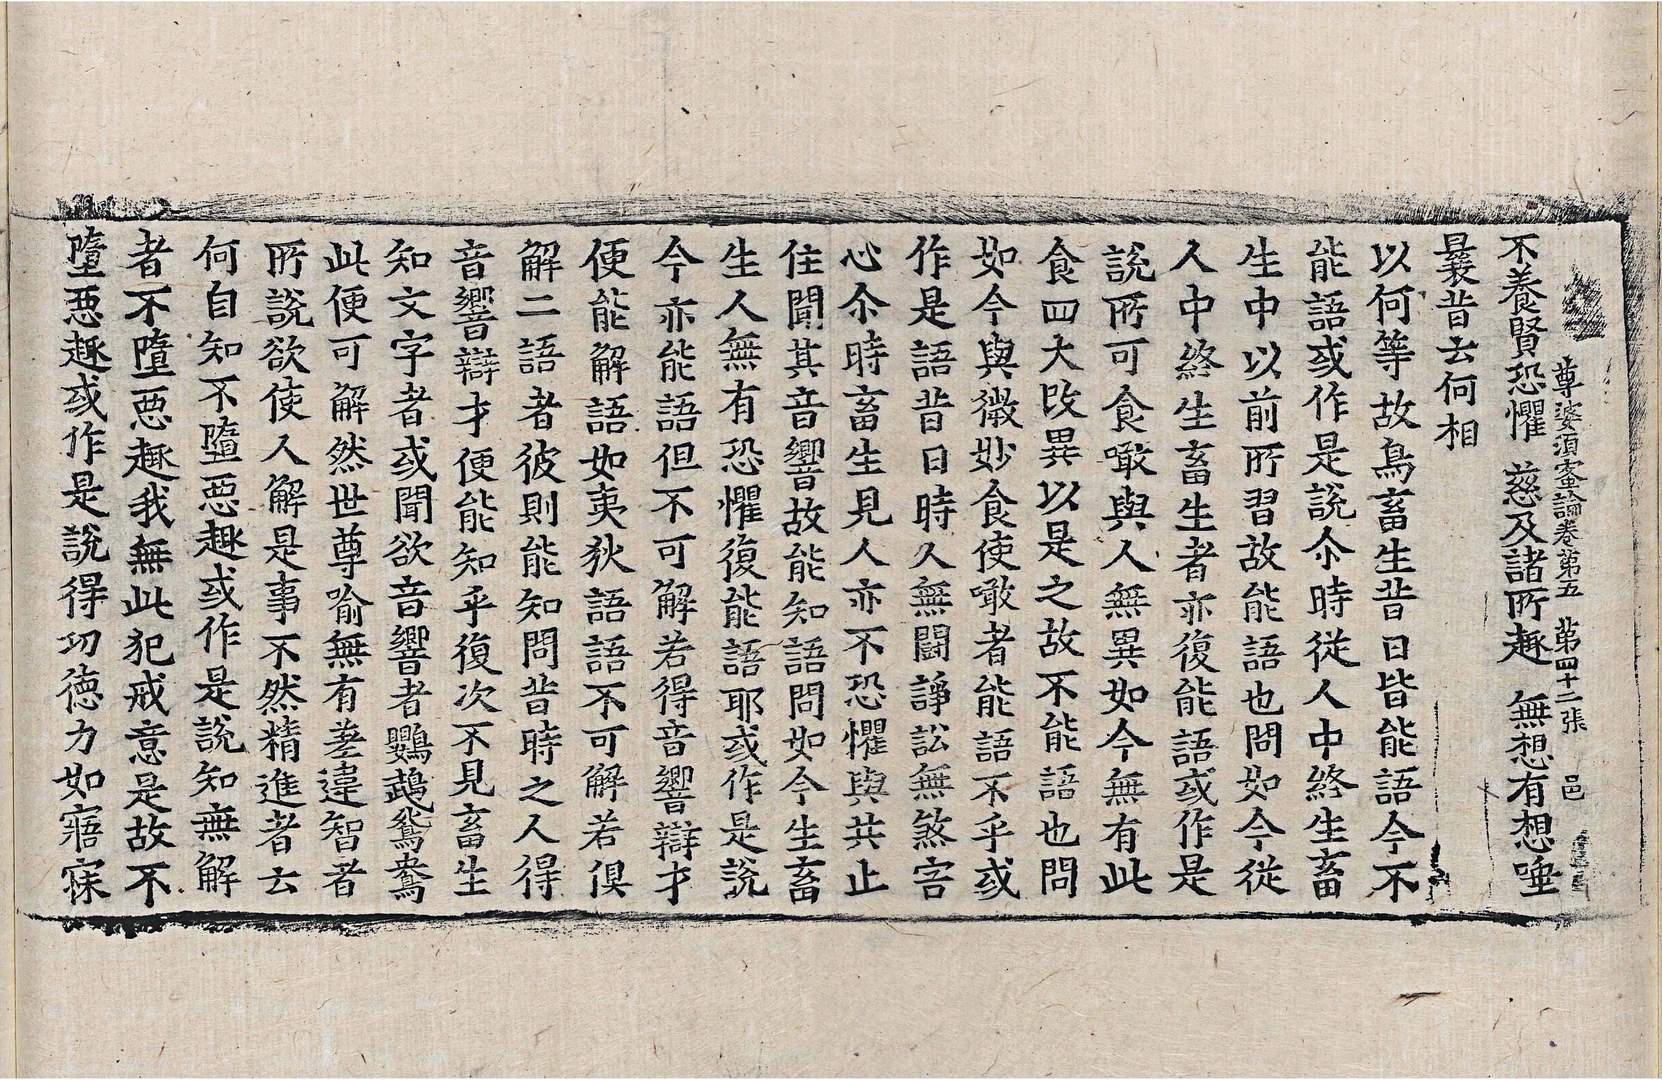 尊婆湏蜜論卷第五　第四十二張　邑
不養賢恐懼　慈及諸所趣　無想有想唾
曩昔云何相
以何等故鳥畜生昔日皆能語今不
能語或作是說尒時從人中終生畜
生中以前所習故能語也問如今從
人中終生畜生者亦復能語或作是
說所可食噉與人無異如今無有此
食四大改異以是之故不能語也問
如今與微妙食使噉者能語不乎或
作是語昔日時人無鬪諍訟無煞害
心尒時畜生見人亦不恐懼與共止
住聞其音響故能知語問如今生畜
生人無有恐懼復能語耶或作是說
今亦能語但不可解若得音響辯才
便能解語如夷狄語語不可解若俱
解二語者彼則能知問昔時之人得
音響辯才便能知乎復次不見畜生
知文字者或聞欲音響者鸚鵡鴛鴦
此便可解然世尊喻無有差違智者
所說欲使人解是事不然精進者云
何自知不墮惡趣或作是說知無解
者不墮惡趣我無此犯戒意是故不
墮惡趣或作是說得功德力如寤寐